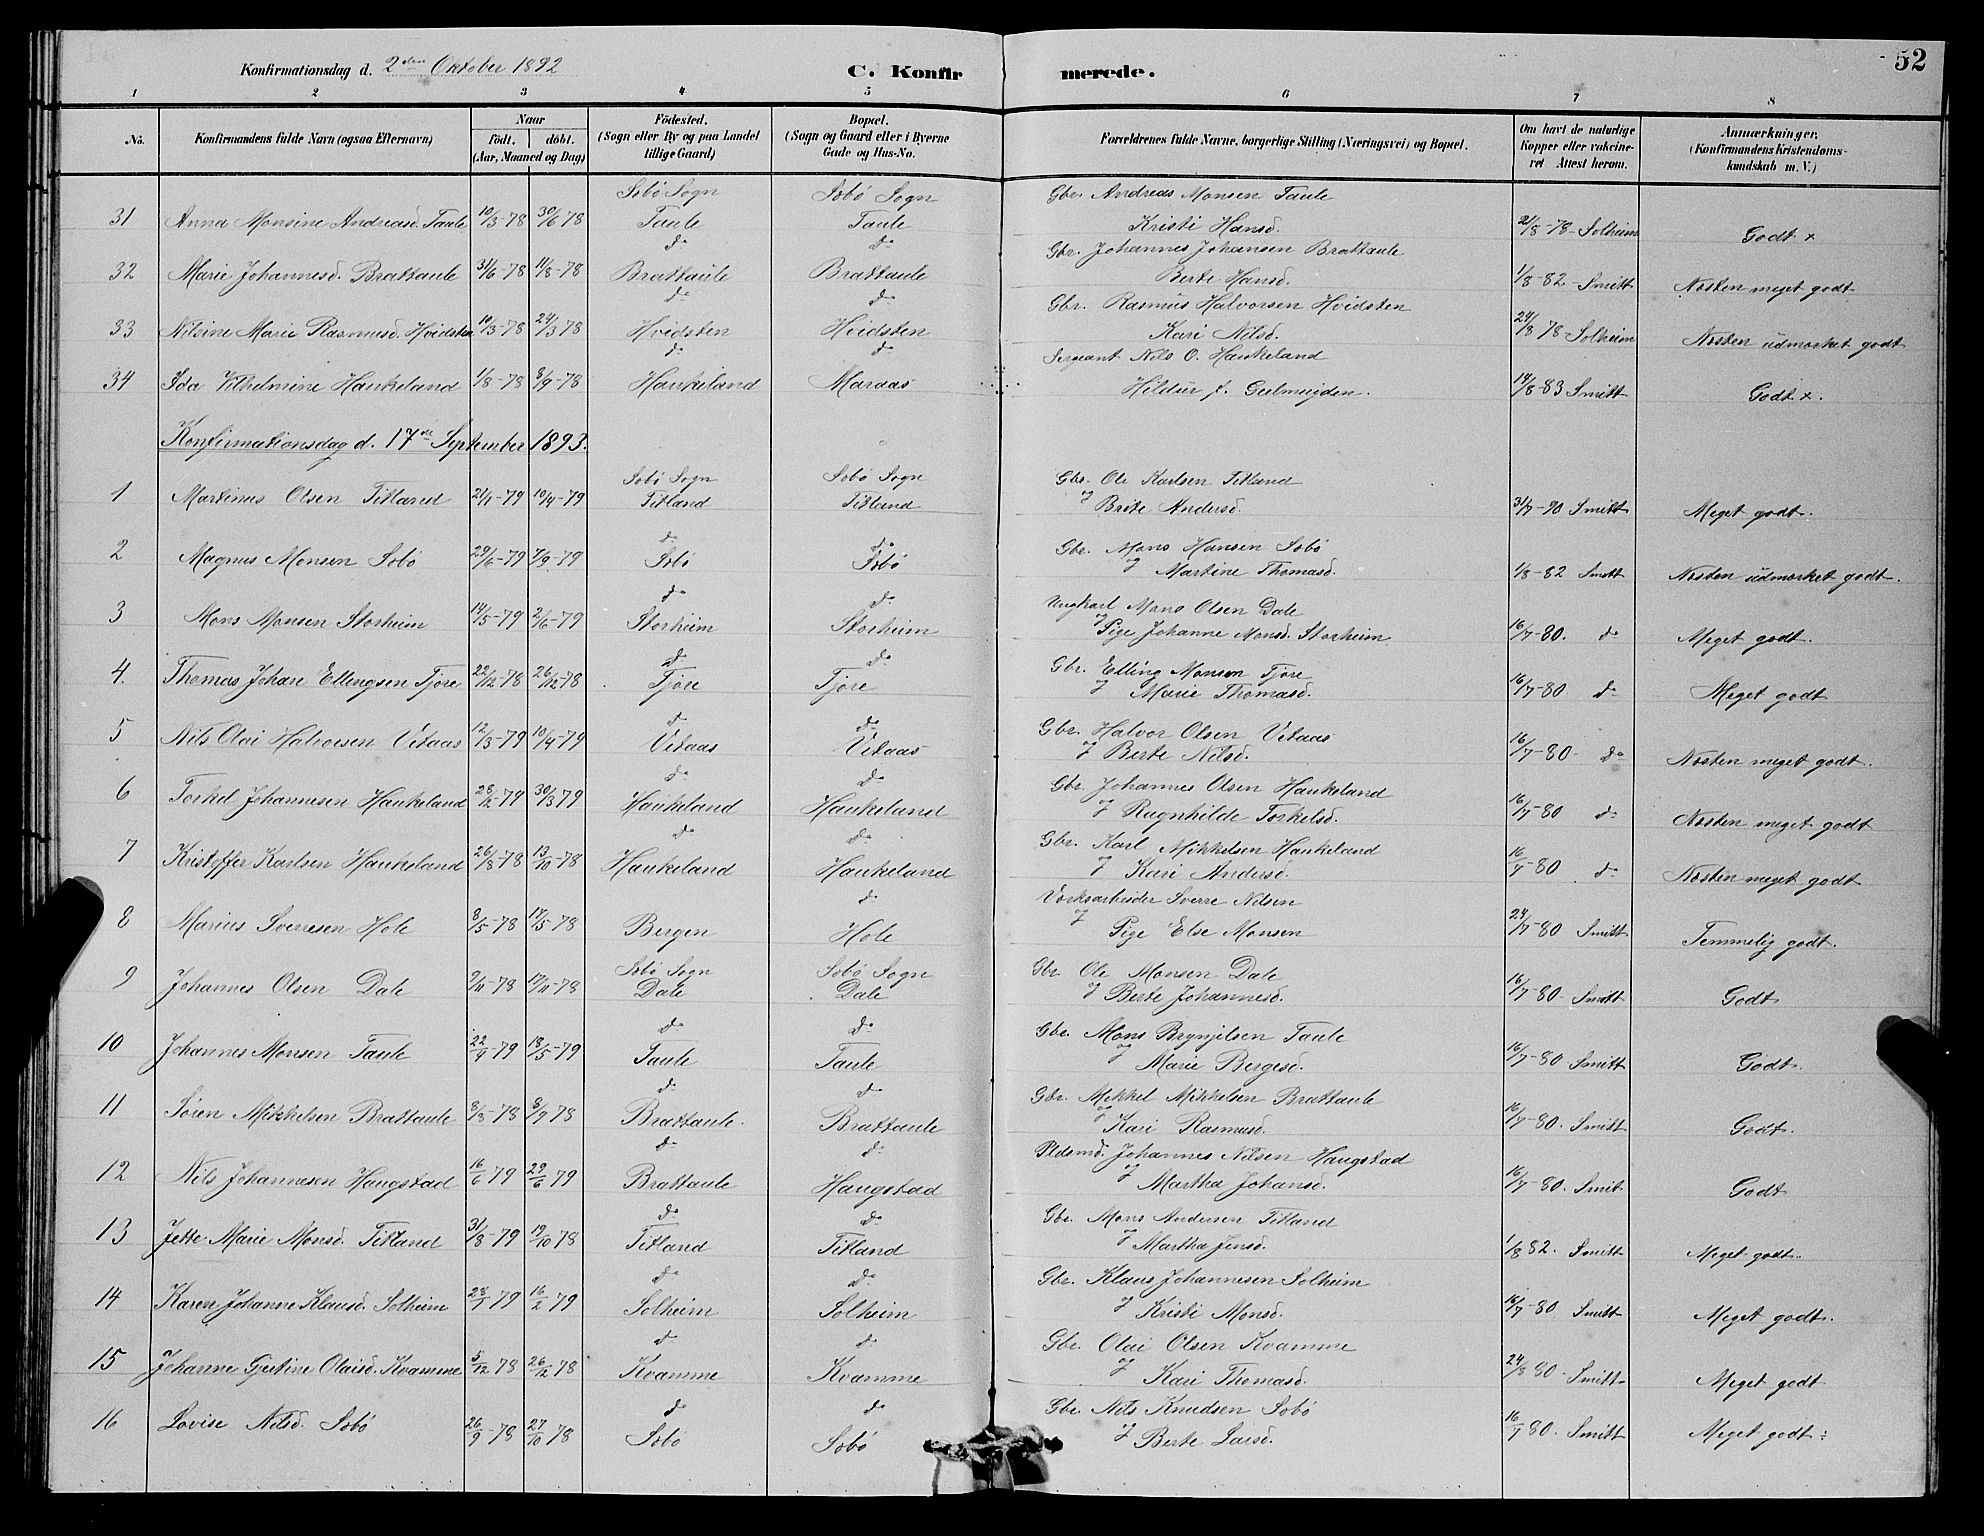 Konfirmationsdag d. 2den Oktober 1892
C. Konfirmerede.
52
1 2 3 4 5 6 7 8
No. Konfirmandens fulde Navn (ogsaa Efternavn) Naar födt. döbt. (Aar, Maaned og Dag) Födested. (Sogn eller By og paa Landet tillige Gaard) Bopæl. (Sogn og Gaard eller i Byerne Gade og Hus-No. Forældrenes fulde Navne, borgerlige Stilling (Næringsvei) og Bopæl. Om havt de naturlige Kopper eller vakcineret Attest herom. Anmærkninger. (Konfirmandens Kristendomskundskab m. V.)
Søbø Sogn Søbø Sogn Gbr. Andreas Monsen Taule
31 Anna Monsine Andreasd. Taule 10/3-78 30/6 78 Taule Taule Kristi Hansd. 21/8-78 Solheim Godt x
do do Gbr. Johannes Johansen Brattaule
32 Marie Johannesd. Brattaule 31/6-78 11/8-78 Brattaule Brattaule Berte Hansd. 1/8-82 Smitt Næsten meget godt
do do Gbr. Rasmus Halvorsen Hvidsten
33 Nilsine Marie Rasmusd. Hvidsten 10/3-78 24/3 78 Hvidsten Hvidsten Kari Nilsd. 24/8 78-Solheim Næsten udmærket godt
do do Sergeant Nils O. Haukeland
34 Ida Vilhelmine Haukeland 1/8-78 8/9-78 Haukeland Maraas Hildur f. Geelmuyden. 14/8-83 Smitt Godt x.
Konfirmationsdag d. 17de September 1893.
Søbø Sogn Søbø Sogn Gbr. Ole Karlsen Titland
1 Martinus Olsen Titland 21/1-79 10/4-79 Titland Titland J Brite Andersd. 31/7-90 Smitt Meget godt.
do do Gbr. Mons Hansen Søbø
2 Magnus Monsen Søbø 29/6-79 7/9-79 Søbø Søbø J Martine Thomasd. 1/8-82 Smitt Næsten udmærket godt.
do do Ungkarl Mons Olsen Dale
3 Mons Monsen Storheim 14/5-79 2/6-79 Storheim Storheim J Pige Johanne Monsd. Storheim 16/7-80. do Meget godt.
do do Gbr. Elling Monsen Tjøre
4. Thomas Johan Ellingsen Tjøre 22/12-78 26/12-78 Tjøre Tjøre J Marie Thomasd. 16/7-80 do Meget godt
do do Gbr. Halvor Olsen Vetaas
5 Nils Olai Halvorsen Vetaas 12/3-79 10/4-79 Vetaas Vetaas J Berte Nilsd. 16/7-80- do Næsten meget godt.
do do Gbr. Johannes Olsen Haukeland
6 Torkel Johannesen Haukeland 28/2-79 30/3 79 Haukeland Haukeland J Ragnhilde Torkelsd. 16/7-80 do Næsten meget godt
do do Gbr. Karl Mikkelsen Haukeland
7 Kristoffer Karlsen Haukeland 26/8-78 13/10-78 Haukeland Haukeland J Kari Andersd. 16/7-80 do Næsten meget godt
do Værksarbeider Sverre Nilsen
8 Marius Sverresen Hole 8/5-78 17/5-78 Bergen Hole J Pige Else Monsen 24/7-80 Smitt Temmelig godt.
Søbø Sogn Søbø Sogn Gbr. Ole Monsen Dale
9 Johannes Olsen Dale 9/11-78 17/11-78 Dale Dale J Berte Johannesd. 16/7-80- Smitt Godt
do do Gbr. Mons Brynjelsen Taule
10 Johannes Monsen Taule 22/4-79 18/5-79 Taule Taule J Marie Bergesd. 16/7-80 Smitt Godt.
do do Gbr. Mikkel Mikkelsen Brattaule
11 Søren Mikkelsen Brattaule 8/8-78 8/9 78 Brattaule. Brattaule J Kari Rasmusd. 16/7-80. Smitt Godt.
do do Pldsmd. Johannes Nilsen Haugstad
12 Nils Johannesen Haugstad 16/6 79 29/6 79 Brattaule Haugstad J Martha Johansd. 16/7-80. Smitt Godt
do do Gbr. Mons Andersen Titland
13 Jette Marie Monsd. Titland 31/8-79 19/10 78 Titland Titland J Martha Jensd. 1/8 82. Smitt Meget godt.
do do Gbr. Klaus Johannesen Solheim
14 Karen Johanne Klausd. Solheim 28/1 79 16/2 79 Solheim Solheim J Kristi Monsd. 16/7-80 Smitt Meget godt.
do do Gbr. Olai Olsen Kvamme
15 Johanne Gjertine Olaisd. Kvamme 5/12 78 26/12 78 Kvamme Kvamme J Kari Thomasd. 24/8 80- Smitt Meget godt
do do Gbr. Nils Knudsen Søbø
16 Lovise Nilsd. Søbø 26/9-78 27/10 78 Søbø Søbø J Berte Larsd. 16/7 80. Smitt Meget godt